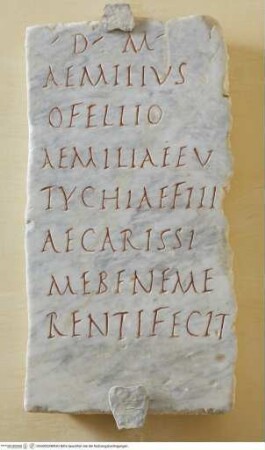 D M
AEMILIVS
OFELLIO
AEMILIAE EV
TYCHIAE FILI
AE CARISSI
ME BENEME
RENTI FECIT